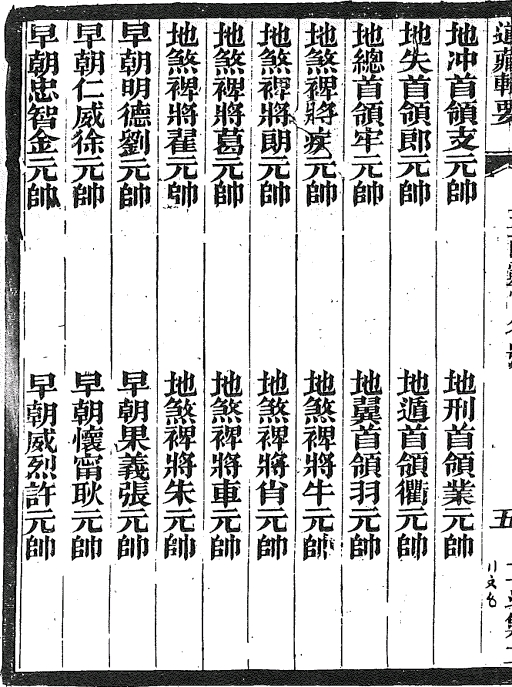 道藏輯要
五
地冲首領支元帥
地刑首領業元帥
地失首領郎元帥
地遁首領衢元帥
地總首領牢元帥
地翼首領羽元帥
地煞裨將疾元帥
地煞裨將牛元帥
地煞裨將朗元帥
地煞裨將肖元帥
地煞裨將葛元帥
地煞裨將車元帥
地煞裨將翟元帥
地煞裨將朱元帥
早朝明德劉元帥
早朝果義張元帥
早朝仁威徐元帥
早朝懷甯耿元帥
早朝忠智金元帥
早朝威烈許元帥